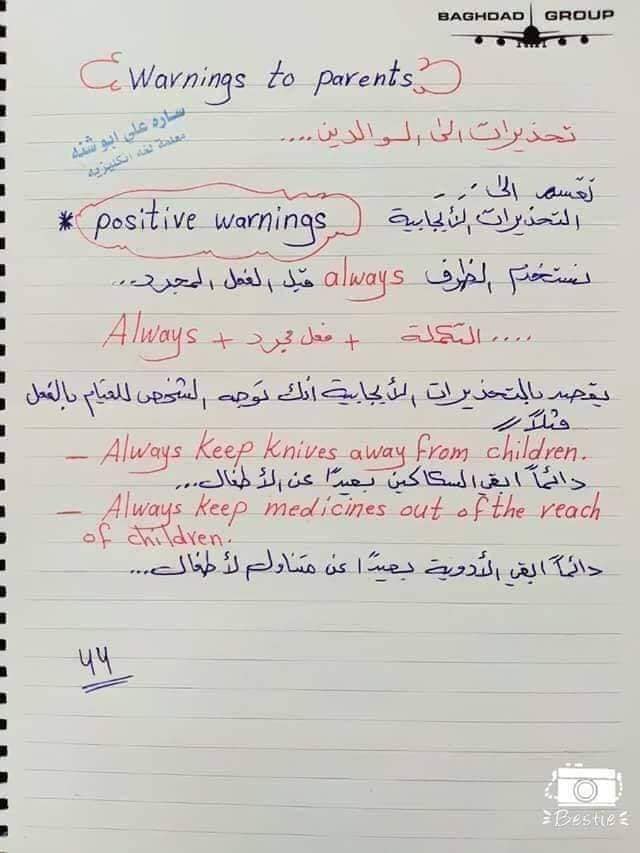 BAGHDAD GROUP
Warnings to parents
تحذيرات الى الوالدين....
ساره علي ابو شنه
معلمة لغه انكليزيه
تقسم الى...
* positive warnings التحذيرات الأيجابية
نستخدم الظرف always قبل الفعل المجرد...
Always + فعل مجرد + التكملة ....
يقصد بالتحذيرات الأيجابية أنك توجه الشخص للقيام بالفعل
مثلاً //
- Always keep knives away from children.
دائماً ابقي السكاكين بعيدًا عن الأطفال...
- Always keep medicines out of the reach
of children.
دائماً ابقي الأدوية بعيدًا عن متناول لأطفال...
٤٤
Bestie